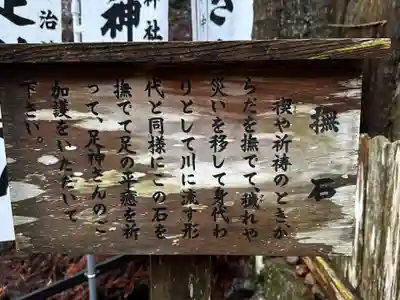 撫石
禊や祈祷のときか
らだを撫でて、穢れや
災いを移して身代わ
りとして川に流す形
代と同様にこの石を
撫でて足の平癒を祈
って、足神さんのご
加護をいただいて
下さい。
足神
神社
治
さ